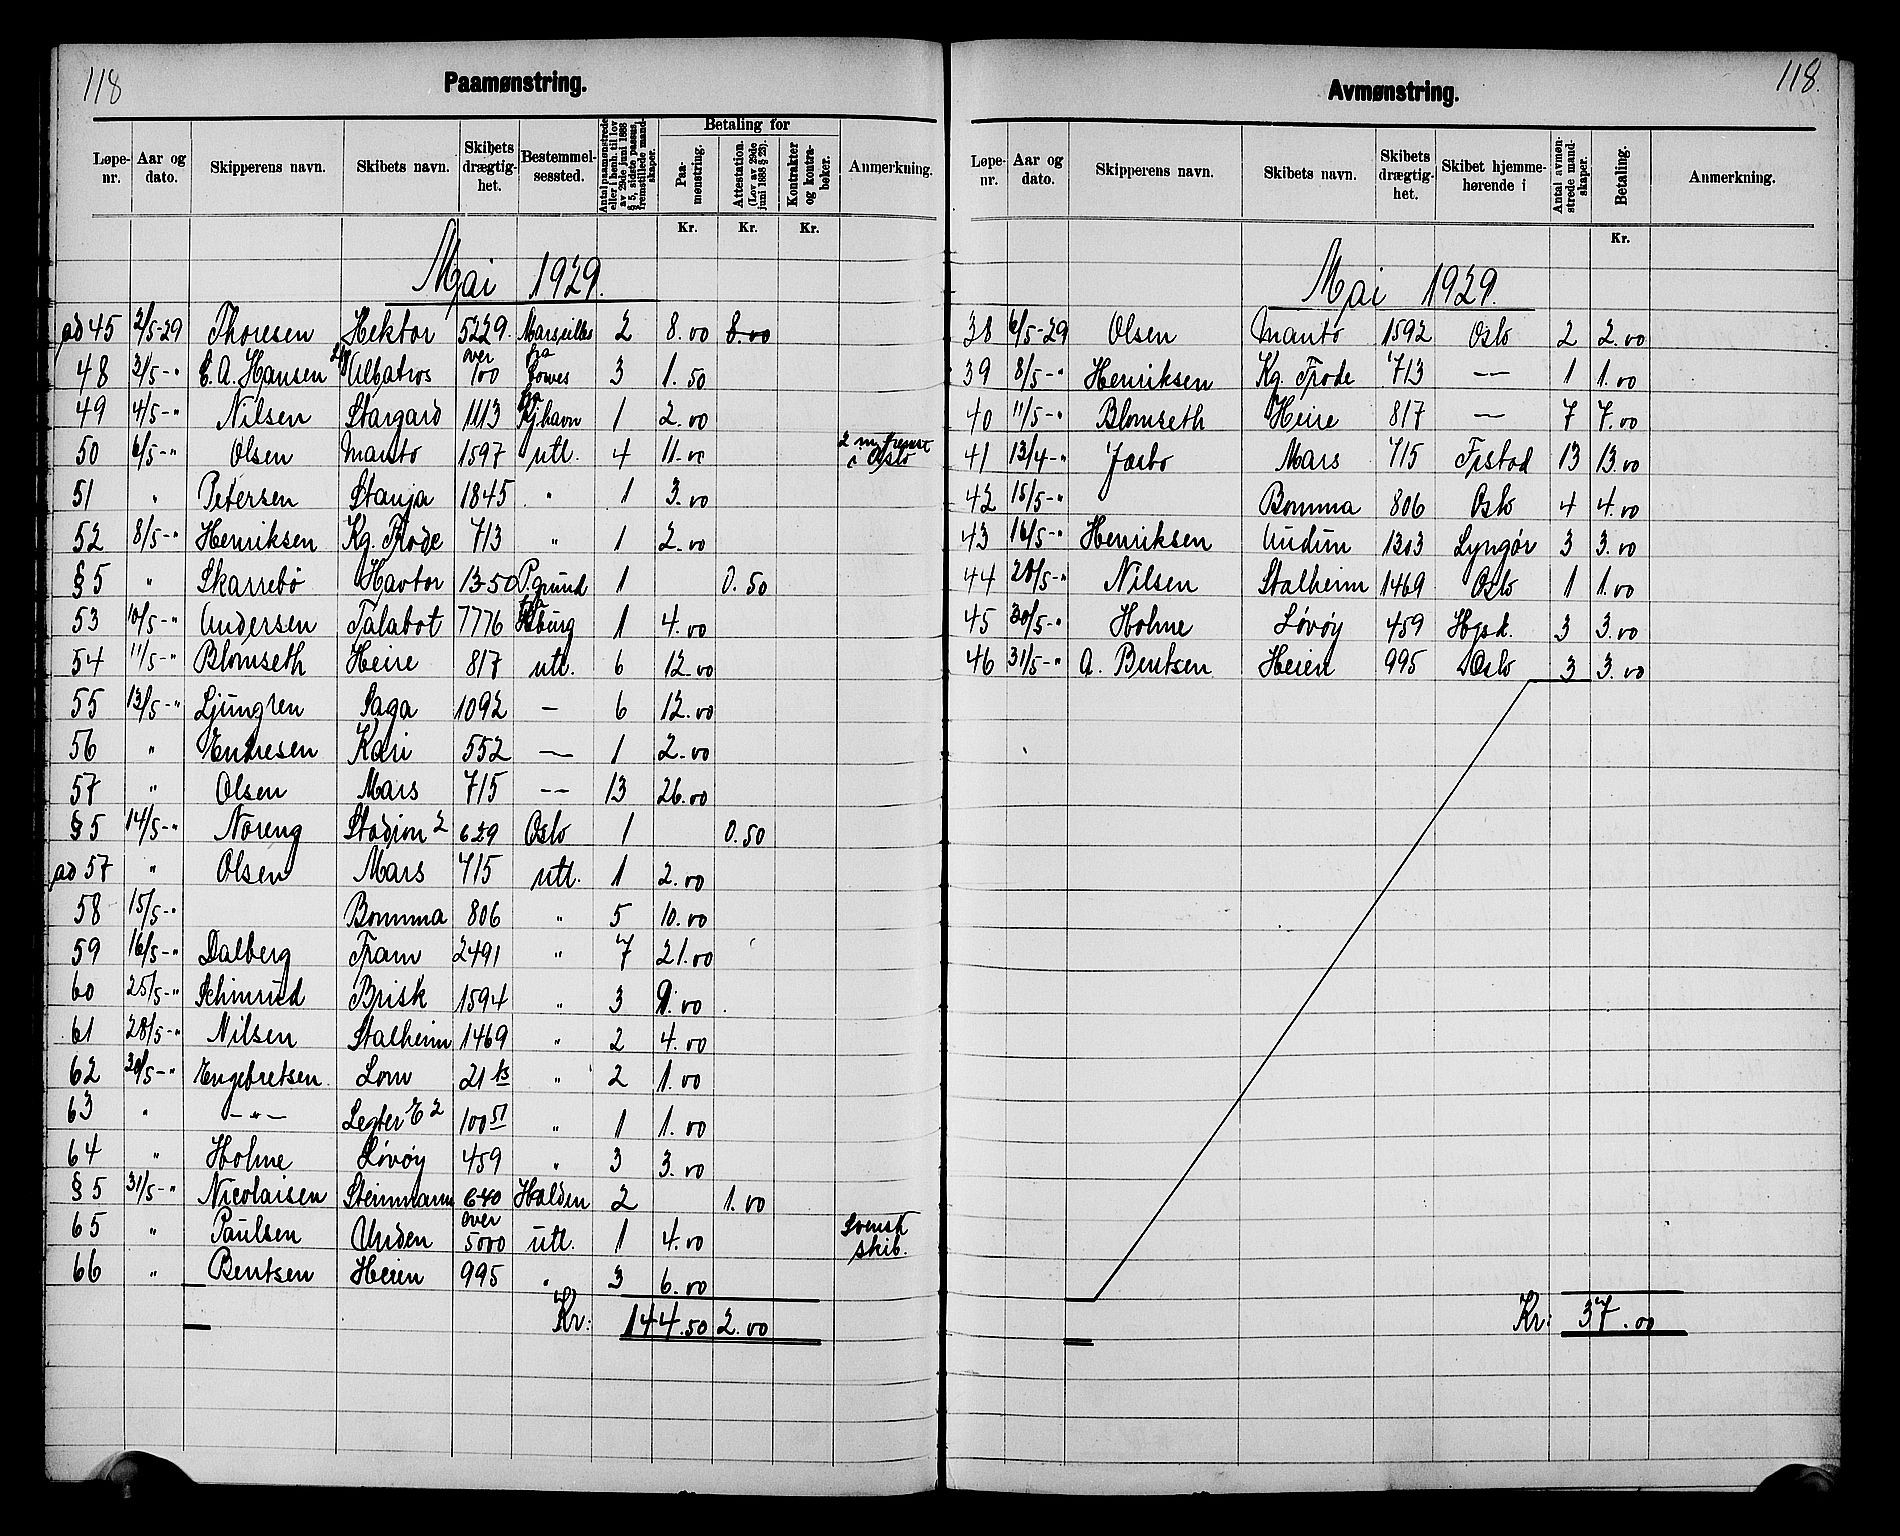 118
Paamønstring.
Løpe-nr. | Aar og dato. | Skipperens navn. | Skibets navn. | Skibets drægtig-het. | Bestemmel-sessted. | Antal paamønstrede eller i henh. til lov av 29de juni 1888 § 5, sidste passus, fremstillede mand-skaper. | Betaling for | Paa-mønstring. Kr. | Attestation. (Lov av 29de juni 1888 § 23). Kr. | Kontrakter og kontra-bøker. Kr. | Anmerkning.
Mai 1929.
ad 45 | 2/5-29 | Thoresen | Hektor | 5229. | Marseilles | 2 | 8.00 | 8.00
48 | 3/5-" | C. A. Hansen | Albatros | over 100 | fra Cowes | 3 | 1.50
49 | 4/5-" | Nilsen | Stargard | 1113 | fra Kj.havn | 1 | 2.00
50 | 6/5-" | Olsen | Manto | 1597 | utl. | 4 | 11.00 | 2 m fremst i Oslo
51 | " | Petersen | Stanja | 1845 | " | 1 | 3.00
52 | 8/5-" | Henriksen | Kg. Frode | 713 | " | 1 | 2.00
§5 | " | Skarrebø | Havtor | 1350 | P.grund | 1 | 0.50
53 | 10/5-" | Andersen | Talabot | 7776 | fra H.burg | 1 | 4.00
54 | 11/5-" | Blomseth | Heire | 817 | utl. | 6 | 12.00
55 | 13/5-" | Ljungren | Saga | 1092 | — | 6 | 12.00
56 | " | Endresen | Kari | 552 | — | 1 | 2.00
57 | " | Olsen | Mars | 715 | — | 13 | 26.00
§5 | 14/5-" | Noreng | Stadion 2 | 629 | Oslo | 1 | 0.50
ad 57 | " | Olsen | Mars | 715 | utl. | 1 | 2.00
58 | 15/5-" | Bomma | 806 | " | 5 | 10.00
59 | 16/5-" | Dalberg | Fram | 2491 | " | 7 | 21.00
60 | 25/5-" | Schinrud | Brisk | 1594 | " | 3 | 9.00
61 | 28/5-" | Nilsen | Stalheim | 1469 | " | 2 | 4.00
62 | 30/5-" | Engebretsen | Lom | 21 | " | 2 | 1.00
63 | " | —"— | Legter E 2 | 100 51 | " | 1 | 1.00
64 | " | Holme | Løvøy | 459 | " | 3 | 3.00
§5 | 31/5-" | Nicolaisen | Steinmann | 640 | Halden | 2 | 1.00
65 | " | Paulsen | Unden | over 5000 | utl. | 1 | 4.00 | Svensk skib.
66 | " | Bentsen | Heien | 995 | " | 3 | 6.00
Kr: 144.50 | 2.00
118.
Avmønstring.
Løpe-nr. | Aar og dato. | Skipperens navn. | Skibets navn. | Skibets drægtig-het. | Skibet hjemme-hørende i | Antal avmøn-strede mand-skaper. | Betaling. Kr. | Anmerkning.
Mai 1929.
38 | 6/5-29 | Olsen | Manto | 1592 | Oslo | 2 | 2.00
39 | 8/5-" | Henriksen | Kg. Frode | 713 | — | 1 | 1.00
40 | 11/5-" | Blomseth | Heire | 817 | — | 7 | 7.00
41 | 13/4-" | Mars | 715 | Frstad | 13 | 13.00
42 | 15/5-" | Bomma | 806 | Oslo | 4 | 4.00
43 | 16/5-" | Henriksen | Audun | 1303 | Lyngør | 3 | 3.00
44 | 28/5-" | Nilsen | Stalheim | 1469 | Oslo | 1 | 1.00
45 | 30/5-" | Holme | Løvøy | 459 | 3 | 3.00
46 | 31/5-" | A. Bentsen | Heien | 995 | Oslo | 3 | 3.00
Kr: 37.00